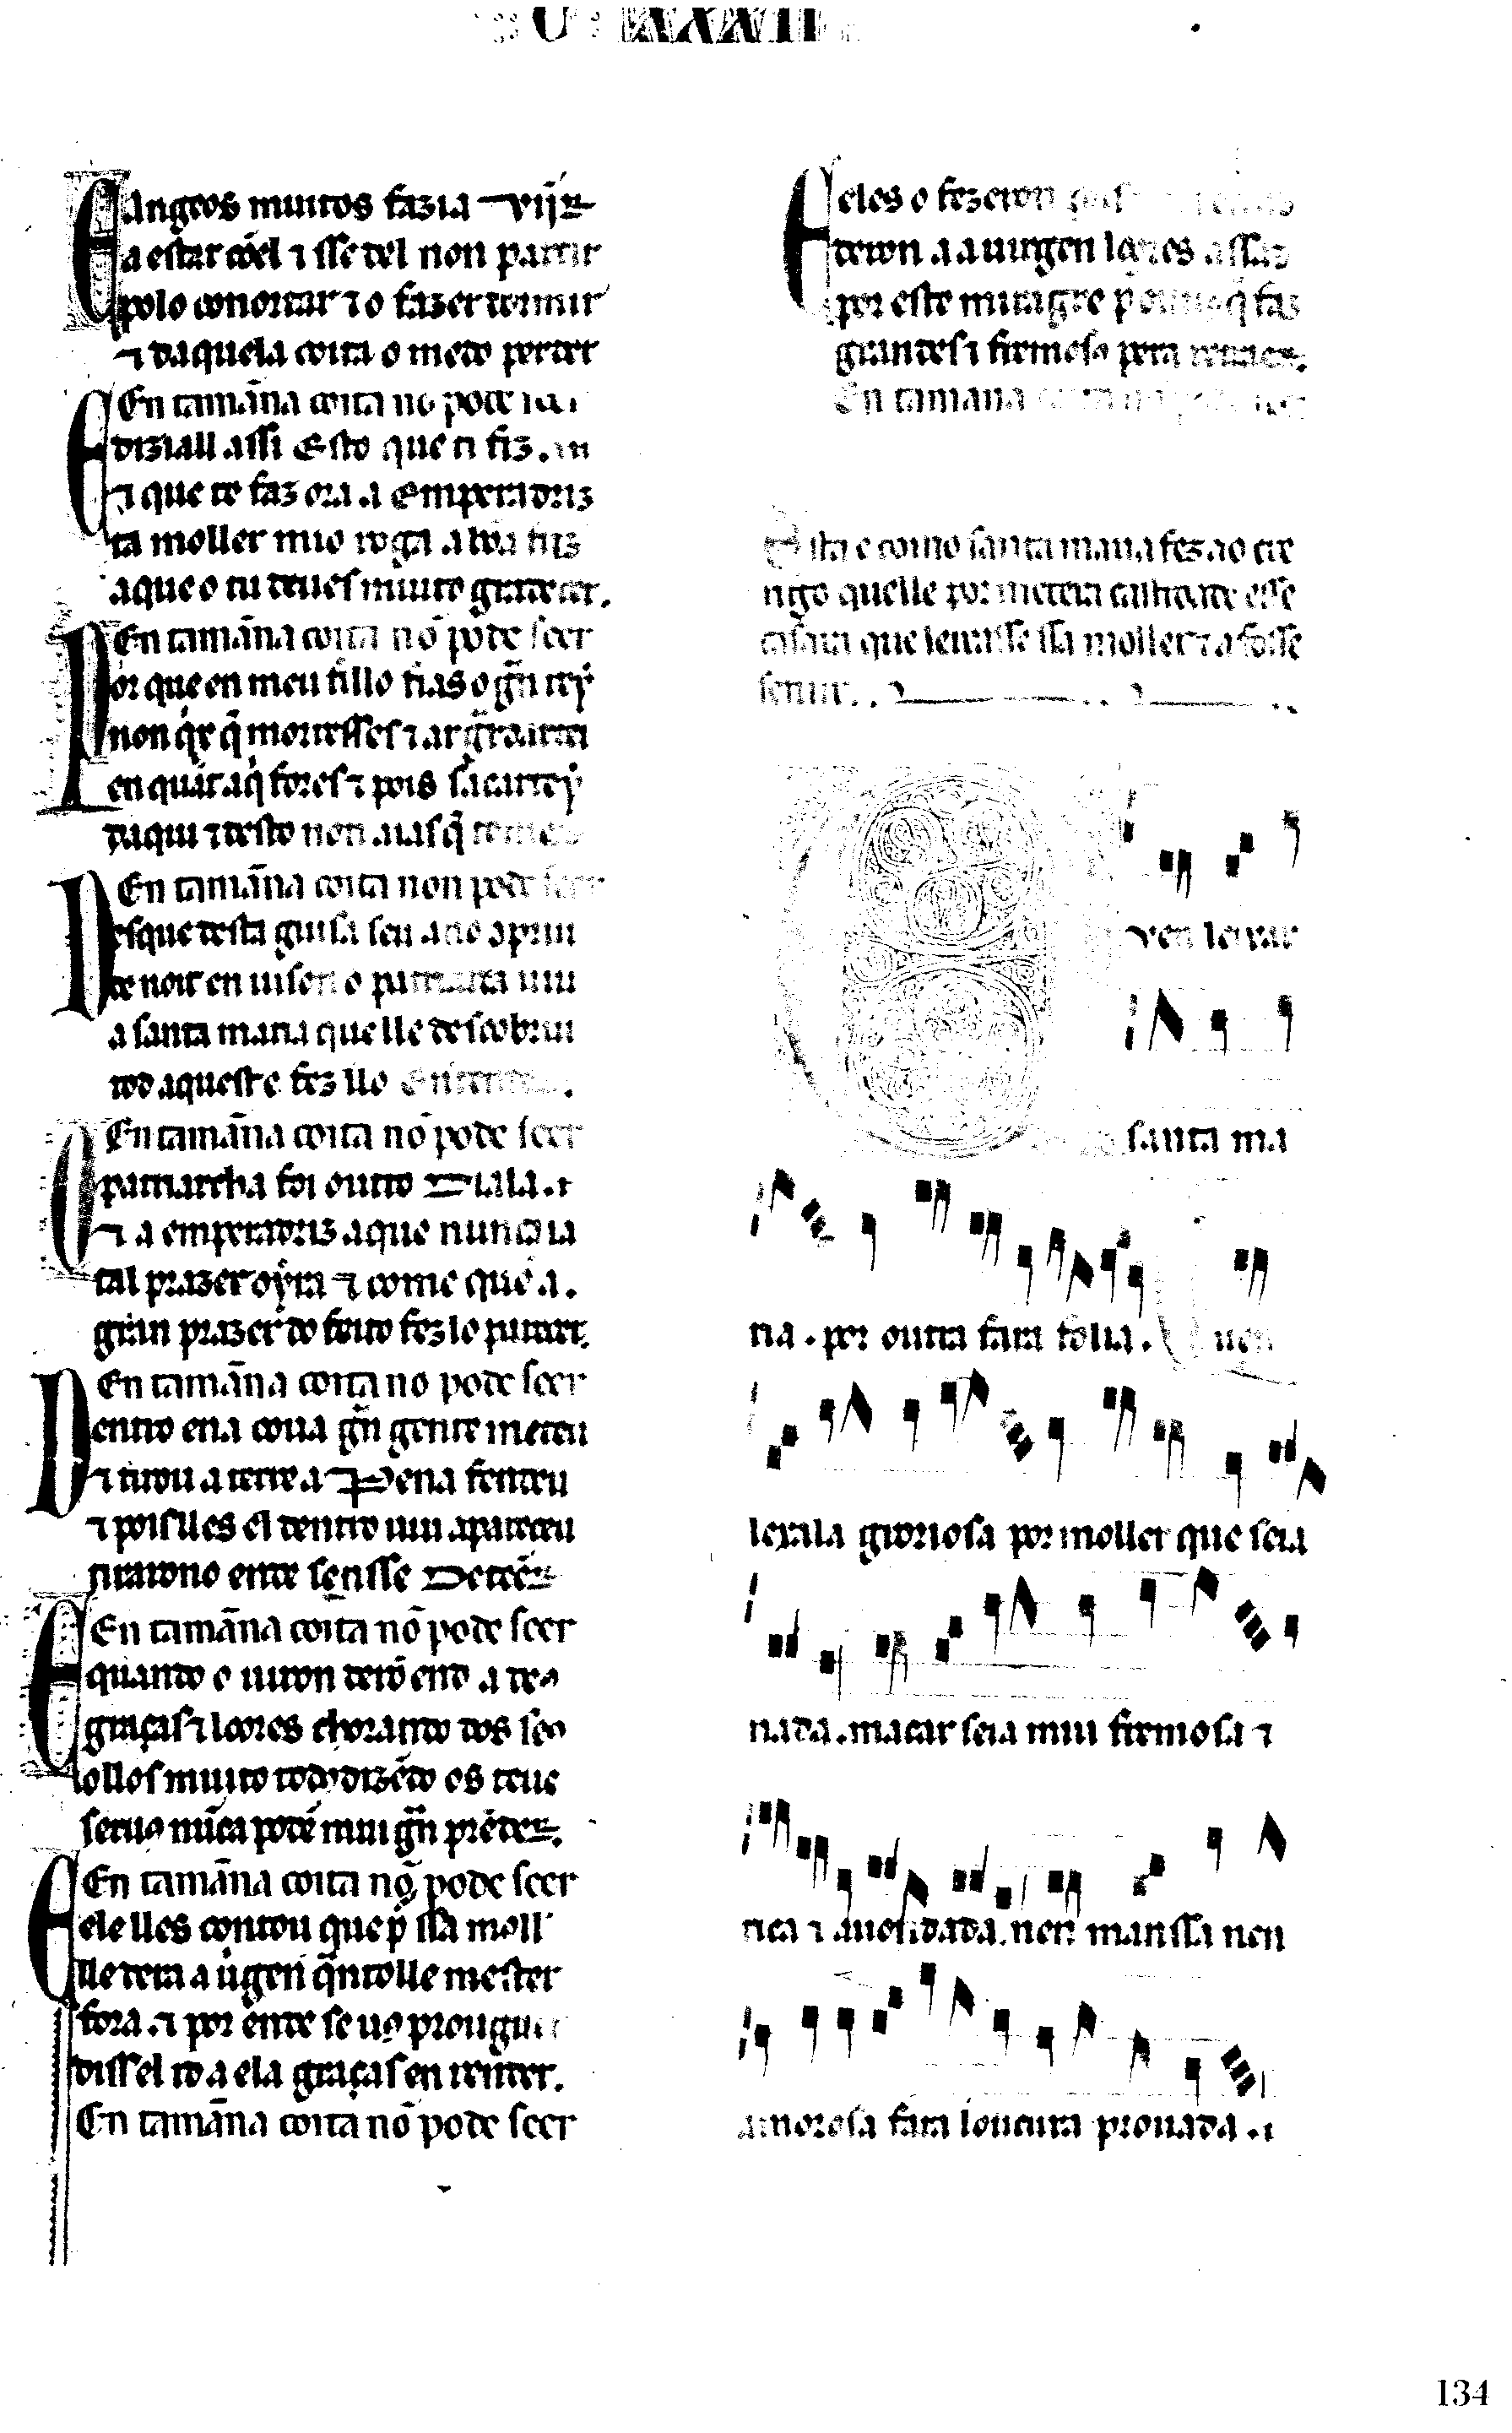 C XXXII
E angeos muitos fazia vĩjr
a estar cõel ⁊ sse del non partir
polo conortar ⁊ o fazer dormir
⁊ daquela coita o medo perder
En tamãna coita no pode
E dizialle assi esto que ti fiz
⁊ que te faz ora a Emperadriz
ta moller mio roga a bõa
a que o tu deues muito gradecer.
En tamãna coita nõ pode seer
Por que en meu fillo fias o gñ rey
non q̇r q̄ morresses ⁊ ar g̃rdartei
en quãt aq̇ fores ⁊ pois sacartey
daqui ⁊ desto non aias q̄
En tamãna coita non pode seer
Desque desta guisa seu ano
de noit en uison o patriarca uiu
a santa maria que lle descobriu
tod aqueste fez llo Entender.
En tamãna coita nõ pode seer
O patriarcha foi outro dia la
⁊ a emperadriz a que nunca ia
tal prazer oyra ⁊ come que a.
gran prazer do feito fezlo
En tamãna coita no pode seer
Dentro ena coua gñ gente meteu
⁊ tirou a terre a Pena fendeu
⁊ pois lles el dentro uiu apareceu
tirarono ende sen sse Deteẽr
En tamãna coita nõ pode seer
E quando o uiron derõ end a deo
graças ⁊ loores chorando dos seo
ollos muito todꝯ dizẽdo os teus
seruo nũca podẽ mui gñ prẽder.
En tamãna coita nõ pode seer
E ele lles contou que ꝑ ssa moll'
lle dera a uĩgen q̃nto lle mester
fora. ⁊ por ende se uꝯ prouguer
diss el to a ela graças en render.
En tamãna coita nõ pode seer
E eles o fezeron
deron a a uirgen loores assaz
por este miragre q̄ faz
grandes ⁊ fremoso pera
En tamana
Esta e como santa maria fez ao cre
rigo quelle por metera castidade e sse
casara que leixasse ssa moller ⁊ a fosse
seruir..
Quen leixar
santa ma
ria. por outra fara folia. Quen
leixala groriosa por moller que seia
nada. macar seia mui fremosa ⁊
rica ⁊ auondada. nen manssa nen
amorosa fara loucura prouada. ⁊
134